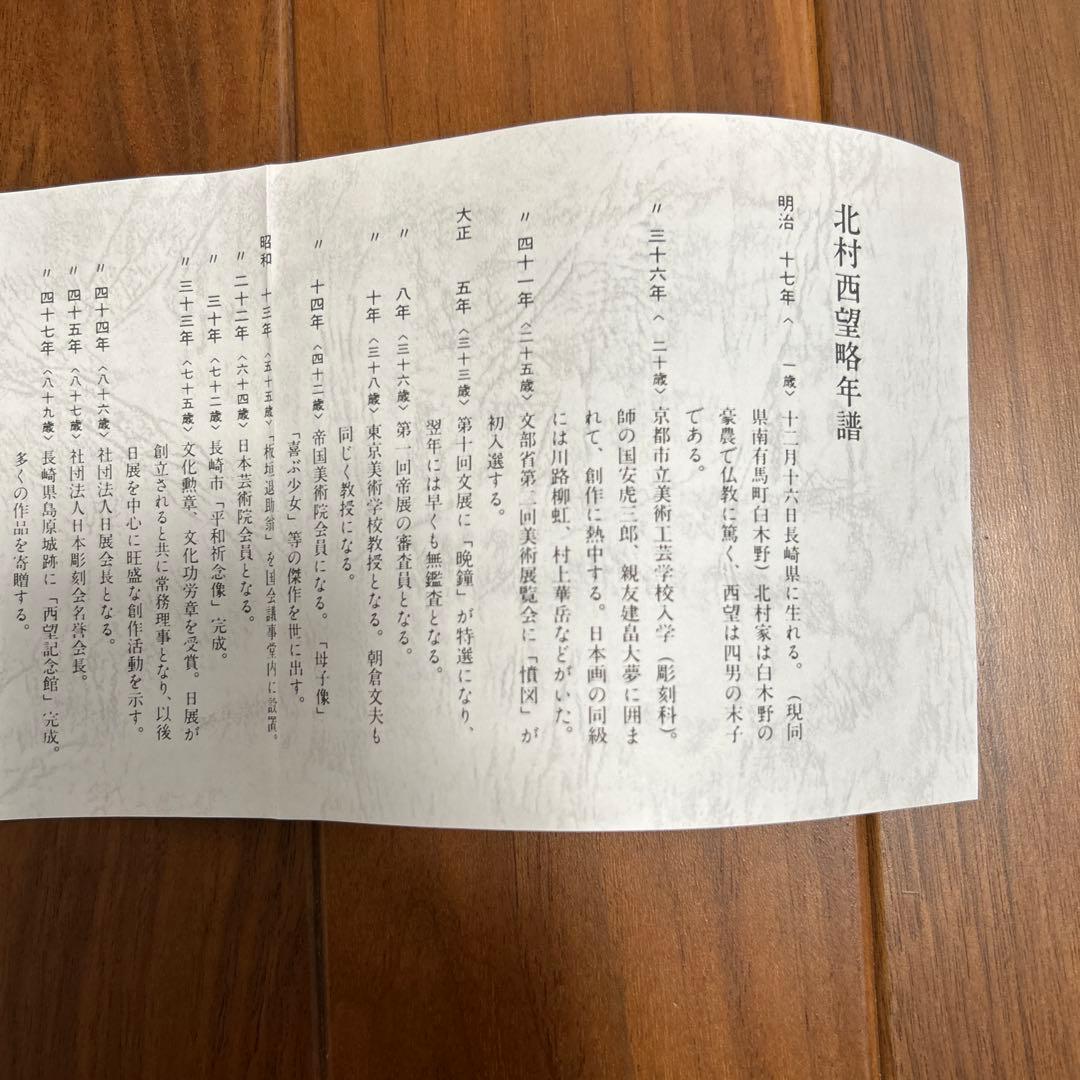 北村西望略年譜
明治 十七年〈 一歳〉十二月十六日長崎県に生れる。(現同
県南有馬町白木野)北村家は白木野の
豪農で仏教に篤く、西望は四男の末子
である。
〃 三十六年〈 二十歳〉京都市立美術工芸学校入学(彫刻科)。
師の国安虎三郎、親友建畠大夢に囲ま
れて、創作に熱中する。日本画の同級
には川路柳虹、村上華岳などがいた。
〃 四十一年〈二十五歳〉文部省第二回美術展覧会に「憤図」が
初入選する。
大正 五年〈三十三歳〉第十回文展に「晩鐘」が特選になり、
翌年には早くも無鑑査となる。
〃 八年〈三十六歳〉第一回帝展の審査員となる。
〃 十年〈三十八歳〉東京美術学校教授となる。朝倉文夫も
同じく教授になる。
〃 十四年〈四十二歳〉帝国美術院会員になる。「母子像」
「喜ぶ少女」等の傑作を世に出す。
昭和 十三年〈五十五歳〉「板垣退助翁」を国会議事堂内に設置。
〃 二十二年〈六十四歳〉日本芸術院会員となる。
〃 三十年〈七十二歳〉長崎市「平和祈念像」完成。
〃 三十三年〈七十五歳〉文化勲章、文化功労章を受賞。日展が
創立されると共に常務理事となり、以後
日展を中心に旺盛な創作活動を示す。
〃 四十四年〈八十六歳〉社団法人日展会長となる。
〃 四十五年〈八十七歳〉社団法人日本彫刻会名誉会長。
〃 四十七年〈八十九歳〉長崎県島原城跡に「西望記念館」完成。
多くの作品を寄贈する。